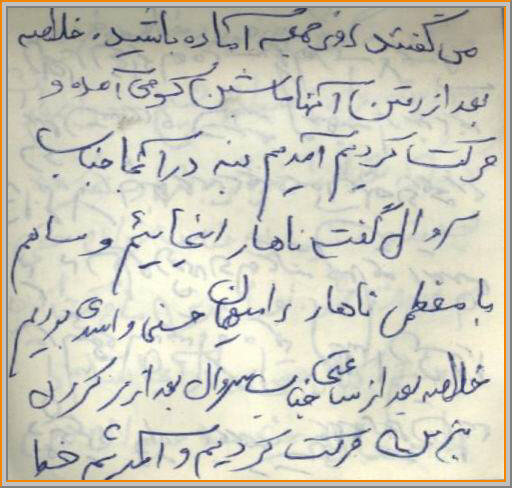 می گفتند روز جمعه آماده باشید. خلاصه
بعد از رفتن آنها ماشین کوهی آمده و
حرکت کردیم آمدیم بنه در آنجا جناب
سروان گفت ناهار اینجاییم و ما هم
با مفصلی ناهار را میهمان حسنی و اسدی بودیم
خلاصه بعد از ساعتی جناب سروان بعد از پر کردن
بنزین حرکت کردیم و آمدیم خط